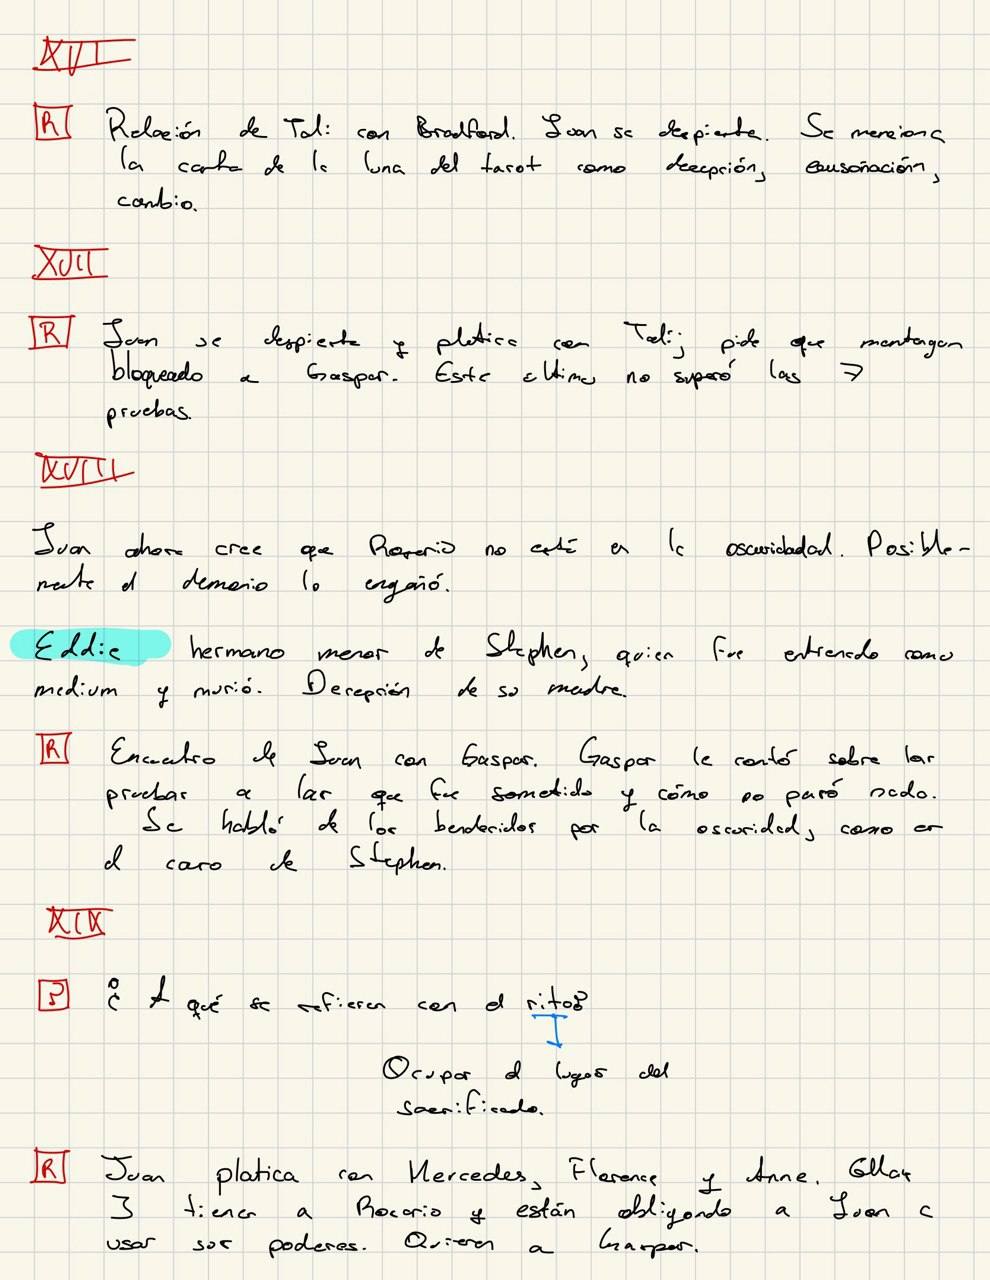 XVI
R Relación de Tali con Bradford. Juan se despierta. Se menciona
la carta de la luna del tarot como decepción, ensoñación,
cambio.
XVII
R Juan se despierta y platica con Tali; pide que mantengan
bloqueado a Gaspar. Este último no superó las 7
pruebas.
XVIII
Juan ahora cree que Rosario no está en la oscuridadad. Posible-
mente el demonio lo engañó.
Eddie hermano menor de Stephen, quien fue entrenado como
medium y murió. Decepción de su madre.
R Encuentro de Juan con Gaspar. Gaspar le contó sobre las
pruebas a las que fue sometido y cómo no paró nada.
Se habló de los bendecidos por la oscuridad, como en
el caso de Stephen.
XIX
? ¿A qué se refieren con el rito?
Ocupar el lugar del
sacrificado.
R Juan platica con Mercedes, Florence y Anne. Ellas
3 tienen a Rosario y están obligando a Juan a
usar sus poderes. Quieren a Gaspar.